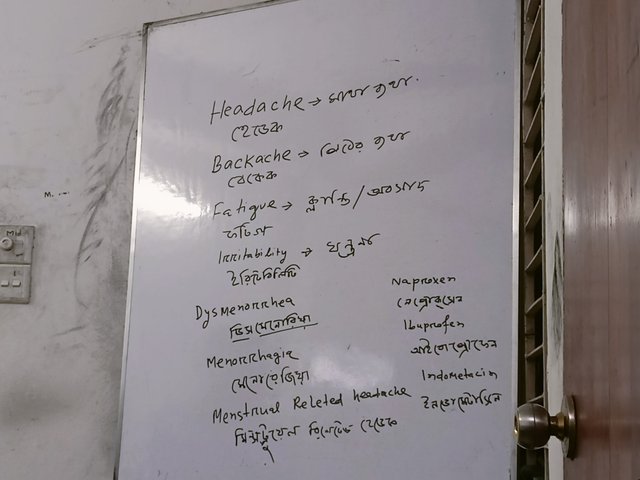 Headache → মাথা ব্যথা
হেডেক
Backache → পিঠের ব্যথা
বেকেক
Fatigue → ক্লান্তি / অবসাদ
ফটিগ
Irritability → যন্ত্রনা
ইরিটেবিলিটি
Dysmenorrhea
ডিসমেনোরিয়া
Naproxen
নেপ্রোক্সেন
Menorrhagia
মেনোরেজিয়া
Ibuprofen
আইবোপ্রোফেন
Menstrual Releted headache
মিন্সট্রুয়েল রিলেটেড হেডেক
Indometacin
ইনডোমেটাসিন